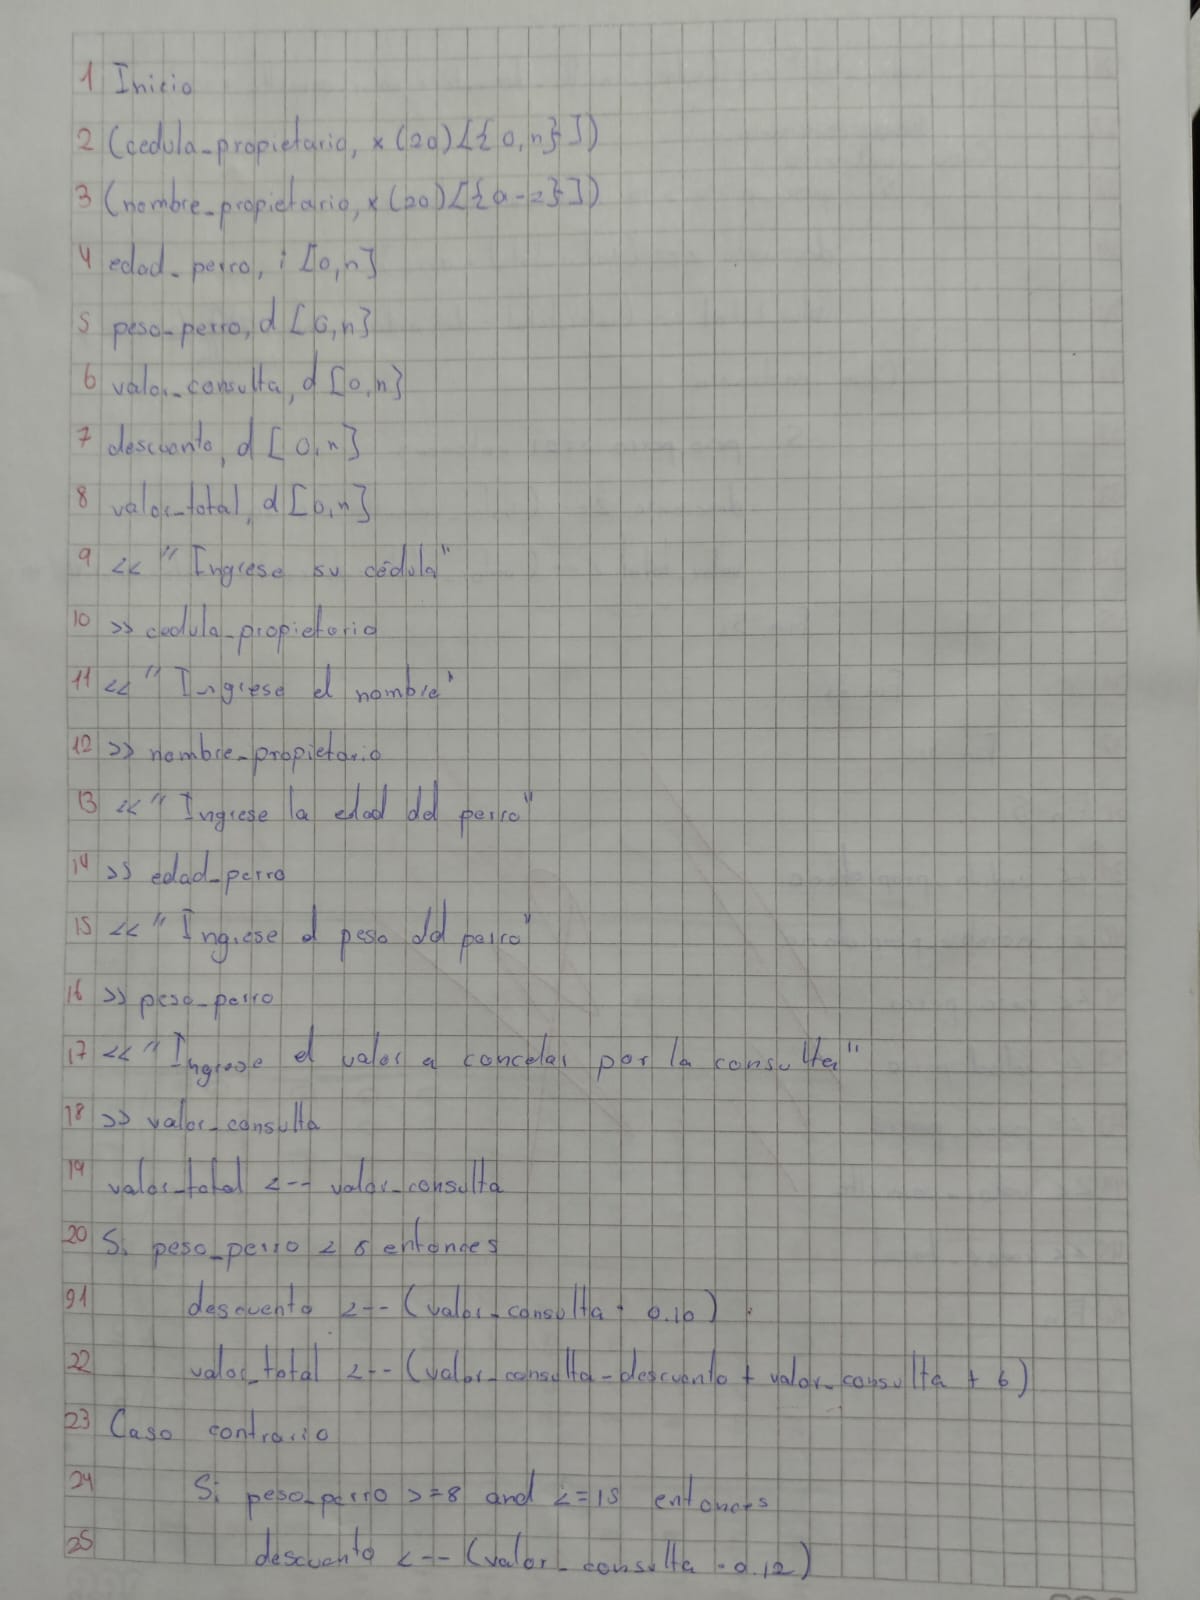 1 Inicio
2 (cedula_propietario, x(20)[{0,n}])
3 (nombre_propietario, x(20)[{a-z}])
4 edad_perro, i [0,n]
5 peso_perro, d [0,n]
6 valor_consulta, d [0,n]
7 descuento, d [0,n]
8 valor_total, d [0,n]
9 << "Ingrese su cédula"
10 >> cedula_propietario
11 << "Ingrese el nombre"
12 >> nombre_propietario
13 << "Ingrese la edad del perro"
14 >> edad_perro
15 << "Ingrese el peso del perro"
16 >> peso_perro
17 << "Ingrese el valor a cancelar por la consulta"
18 >> valor_consulta
19 valor_total <-- valor_consulta
20 Si peso_perro < 8 entonces
21 descuento <-- (valor_consulta · 0.10)
22 valor_total <-- (valor_consulta - descuento + valor_consulta + 6)
23 Caso contrario
24 Si peso_perro >=8 and <=15 entonces
25 descuento <-- (valor_consulta · 0.12)